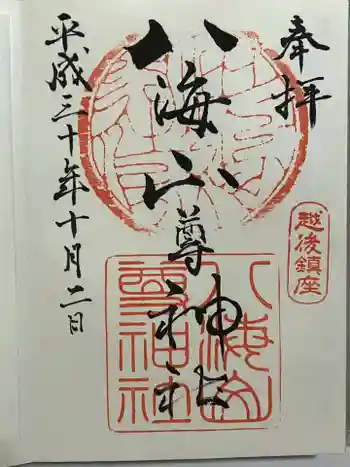 奉拝
越後鎮座
八海山尊神社
八海山
尊神社
平成三十年十月二日